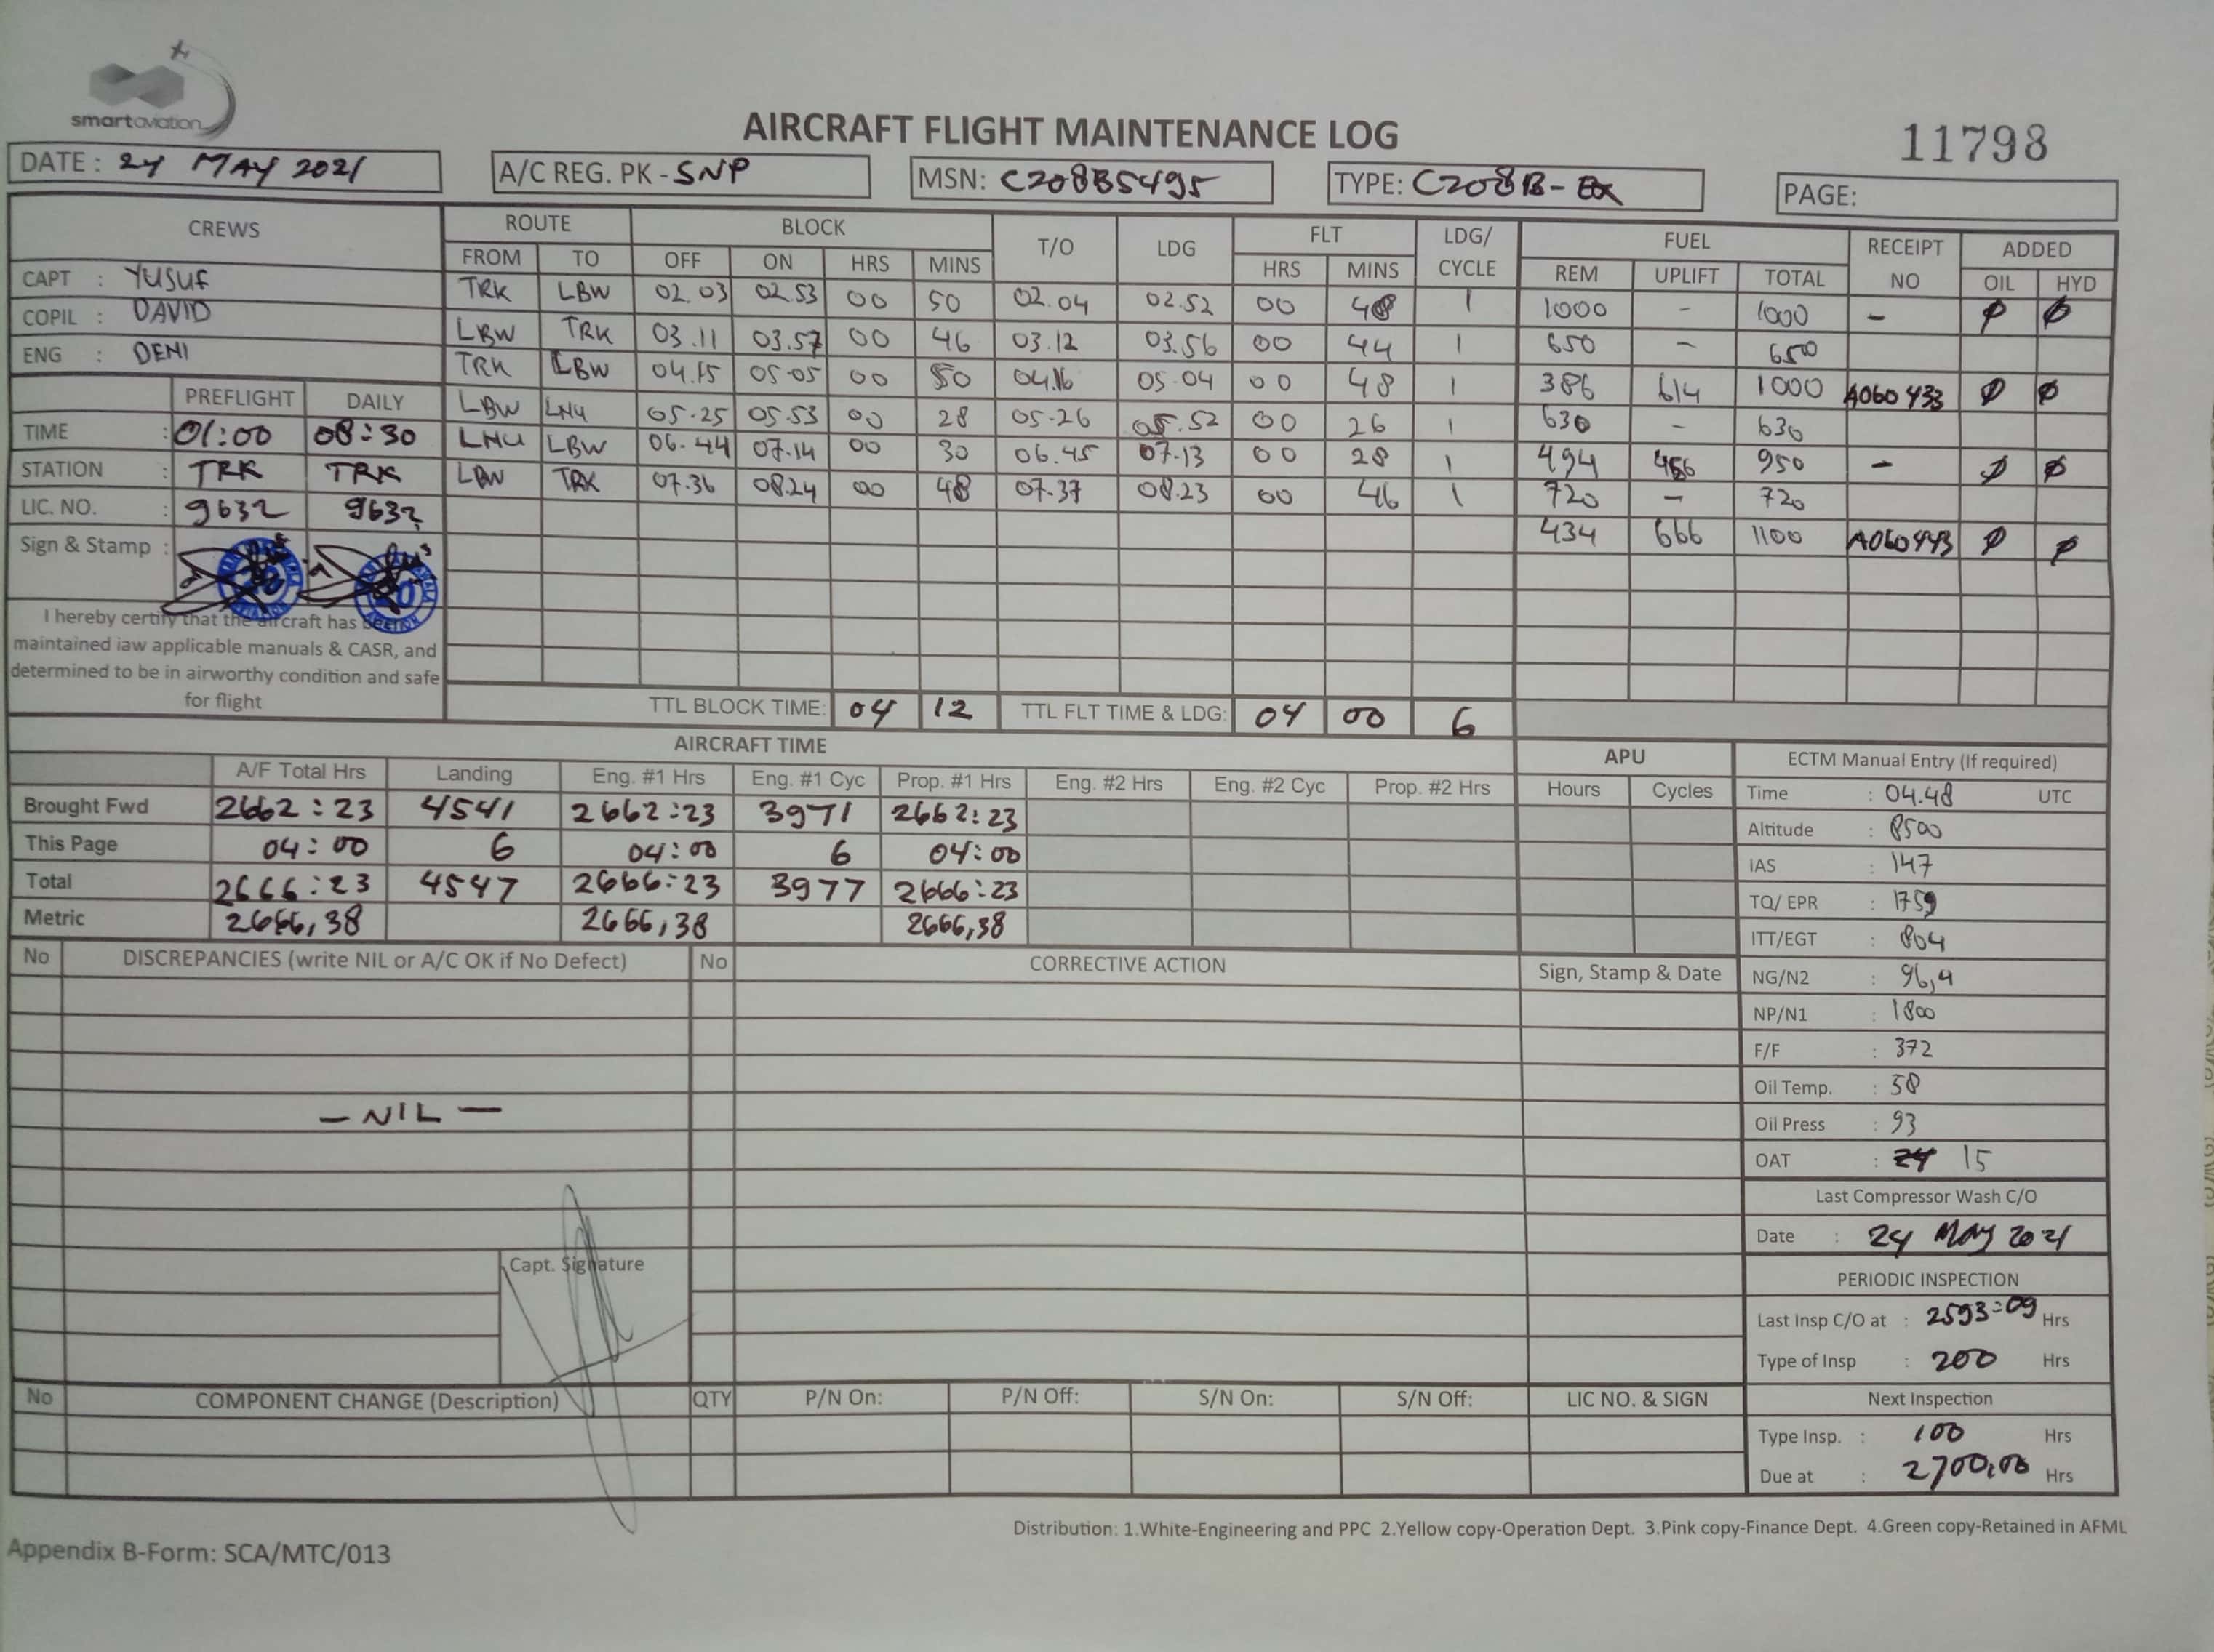 smartaviation
AIRCRAFT FLIGHT MAINTENANCE LOG
11798
DATE : 24 MAY 2021 A/C REG. PK - SNP MSN: C208B5495 TYPE: C208B - EX PAGE:
CREWS ROUTE BLOCK T/O LDG FLT LDG/ CYCLE FUEL RECEIPT NO ADDED
FROM TO OFF ON HRS MINS HRS MINS REM UPLIFT TOTAL OIL HYD
CAPT : YUSUF
COPIL : DAVID
ENG : DENI
TRK LBW 02.03 02.53 00 50 02.04 02.52 00 48 1 1000 - 1000 - Ø Ø
LBW TRK 03.11 03.57 00 46 03.12 03.56 00 44 1 650 - 650
TRK LBW 04.15 05.05 00 50 04.16 05.04 00 48 1 386 614 1000 A060433 Ø Ø
LBW LNU 05.25 05.53 00 28 05.26 05.52 00 26 1 630 - 630
LNU LBW 06.44 07.14 00 30 06.45 07.13 00 28 1 494 456 950 - Ø Ø
LBW TRK 07.36 08.24 00 48 07.37 08.23 00 46 1 720 - 720
434 666 1100 A060443 Ø Ø
PREFLIGHT DAILY
TIME : 01:00 08:30
STATION : TRK TRK
LIC. NO. : 9632 9632
Sign & Stamp :
I hereby certify that the aircraft has been
maintained iaw applicable manuals & CASR, and
determined to be in airworthy condition and safe
for flight
TTL BLOCK TIME: 04 12 TTL FLT TIME & LDG: 04 00 6
AIRCRAFT TIME APU
A/F Total Hrs Landing Eng. #1 Hrs Eng. #1 Cyc Prop. #1 Hrs Eng. #2 Hrs Eng. #2 Cyc Prop. #2 Hrs Hours Cycles
Brought Fwd 2662:23 4541 2662:23 3971 2662:23
This Page 04:00 6 04:00 6 04:00
Total 2666:23 4547 2666:23 3977 2666:23
Metric 2666,38 2666,38 2666,38
ECTM Manual Entry (If required)
Time : 04.48 UTC
Altitude : 8500
IAS : 147
TQ/ EPR : 1759
ITT/EGT : 804
NG/N2 : 96,4
NP/N1 : 1800
F/F : 372
Oil Temp. : 58
Oil Press : 93
OAT : 15
Last Compressor Wash C/O
Date : 24 MAY 2021
PERIODIC INSPECTION
Last Insp C/O at : 2593:09 Hrs
Type of Insp : 200 Hrs
Next Inspection
Type Insp. : 100 Hrs
Due at : 2700,00 Hrs
No DISCREPANCIES (write NIL or A/C OK if No Defect) No CORRECTIVE ACTION Sign, Stamp & Date
- NIL -
Capt. Signature
No COMPONENT CHANGE (Description) QTY P/N On: P/N Off: S/N On: S/N Off: LIC NO. & SIGN
Distribution: 1.White-Engineering and PPC 2.Yellow copy-Operation Dept. 3.Pink copy-Finance Dept. 4.Green copy-Retained in AFML
Appendix B-Form: SCA/MTC/013